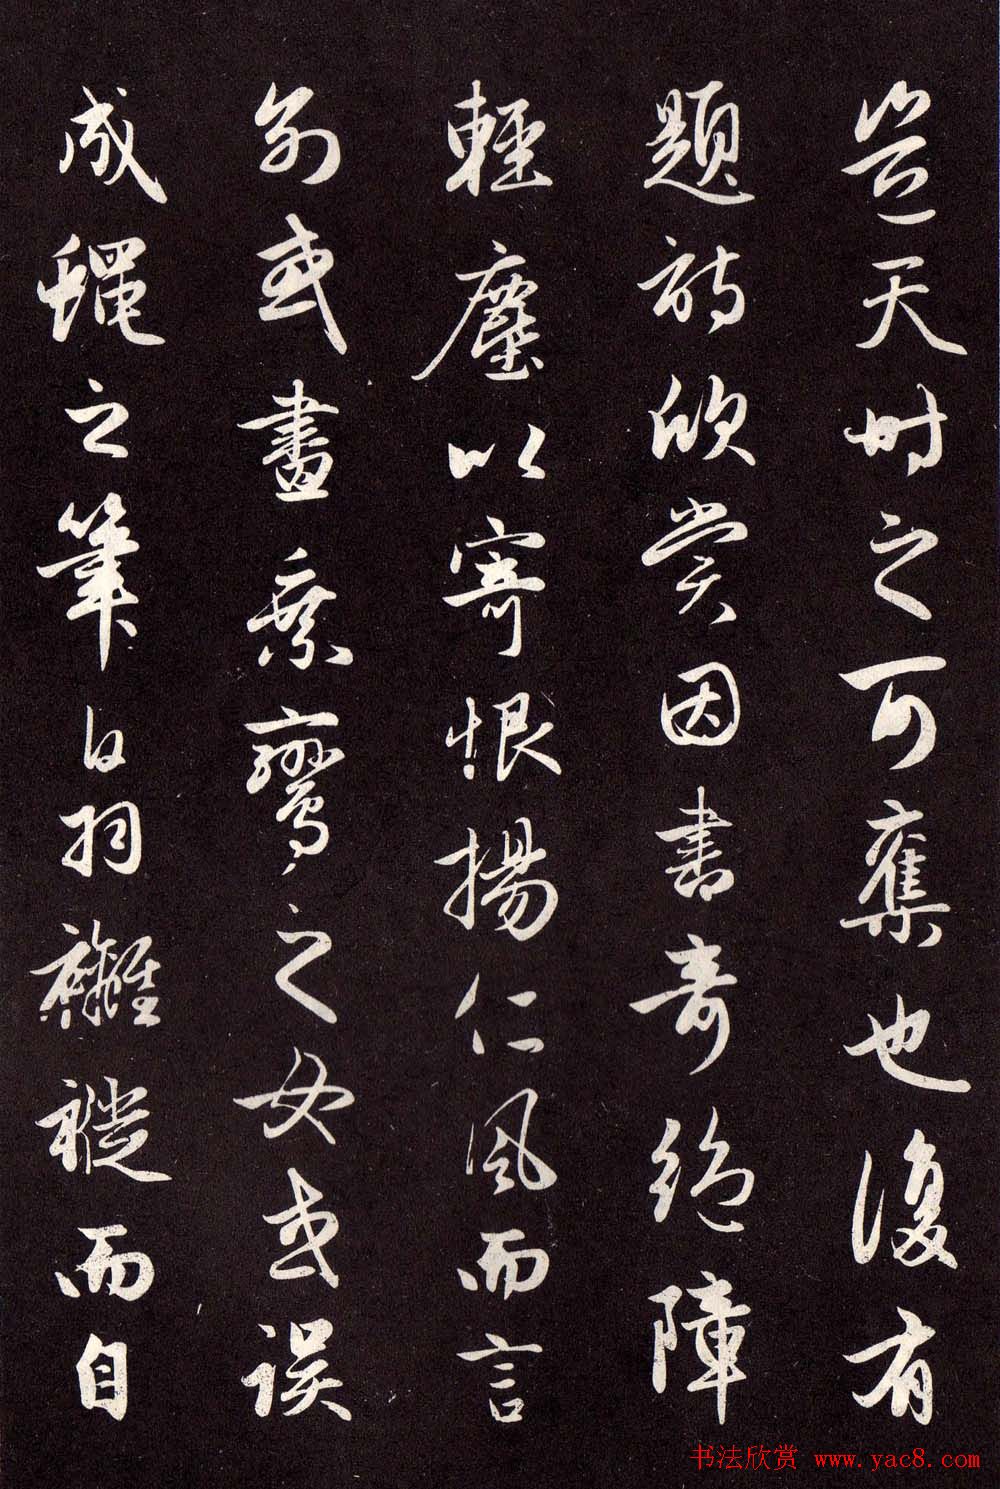 豈天時之可奪也復有
題詩欣賞因書奇絕障
輕塵以寄恨揚仁風而言
別或畫乘鸞之女或誤
成蠅之筆白羽襳褷而自
书法欣赏 www.yac8.com